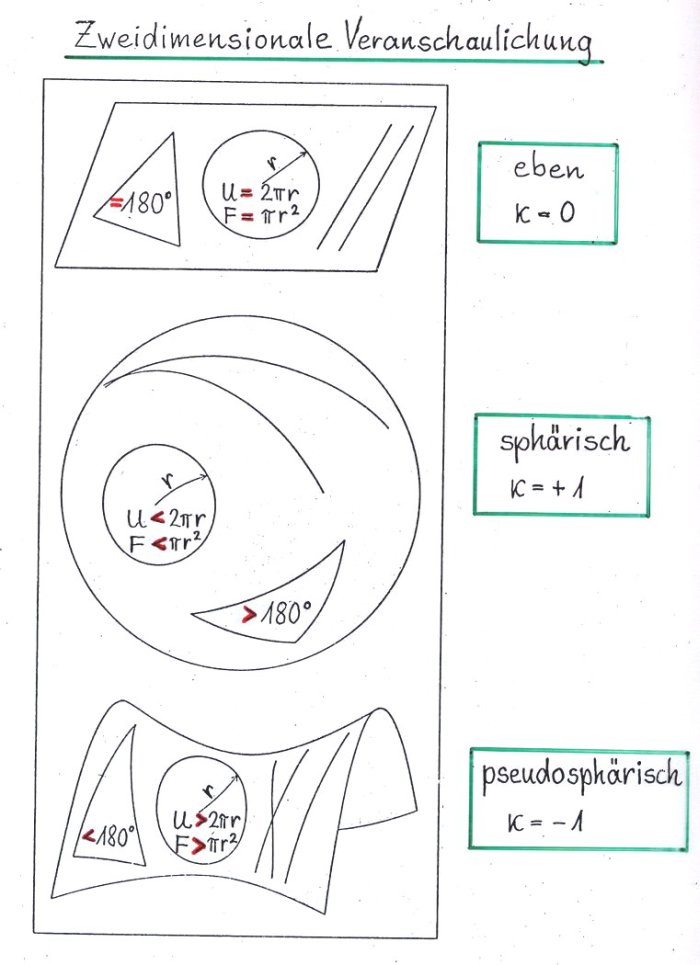 Zweidimensionale Veranschaulichung
=180°
r
U = 2πr
F = πr²
eben
K = 0
r
U < 2πr
F < πr²
>180°
sphärisch
K = + 1
<180°
r
U > 2πr
F > πr²
pseudosphärisch
K = - 1